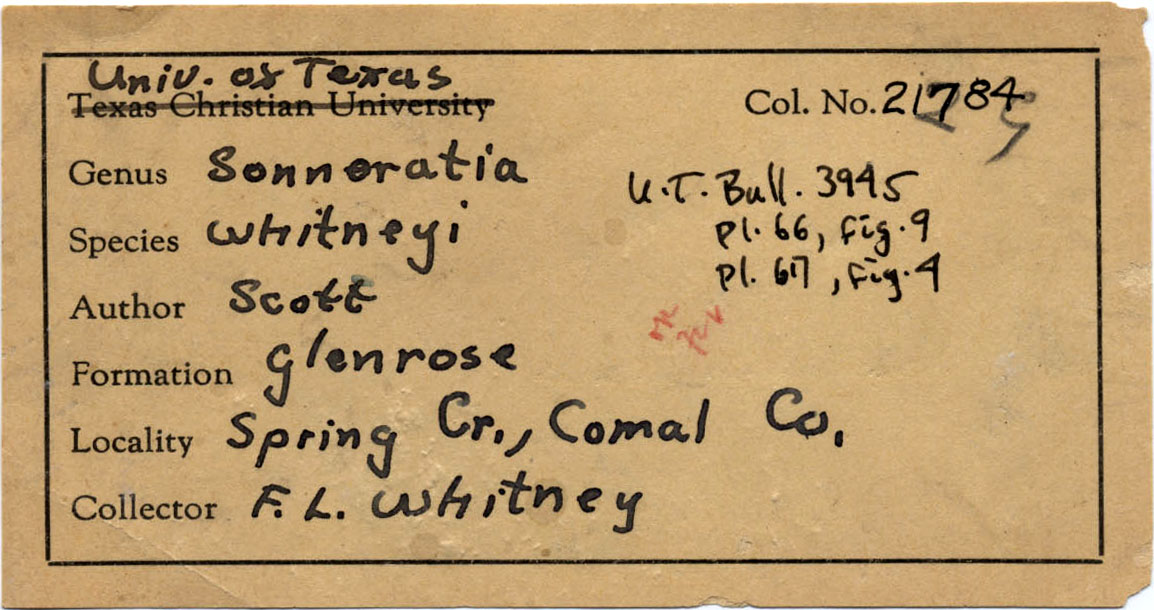 Univ. of Texas
Texas Christian University
Col. No. 21784
Genus Sonneratia
Species whitneyi
Author Scott
Formation Glenrose
Locality Spring Cr., Comal Co.
Collector F. L. Whitney
U.T. Bull. 3945
pl. 66, fig. 9
pl. 67, fig. 4